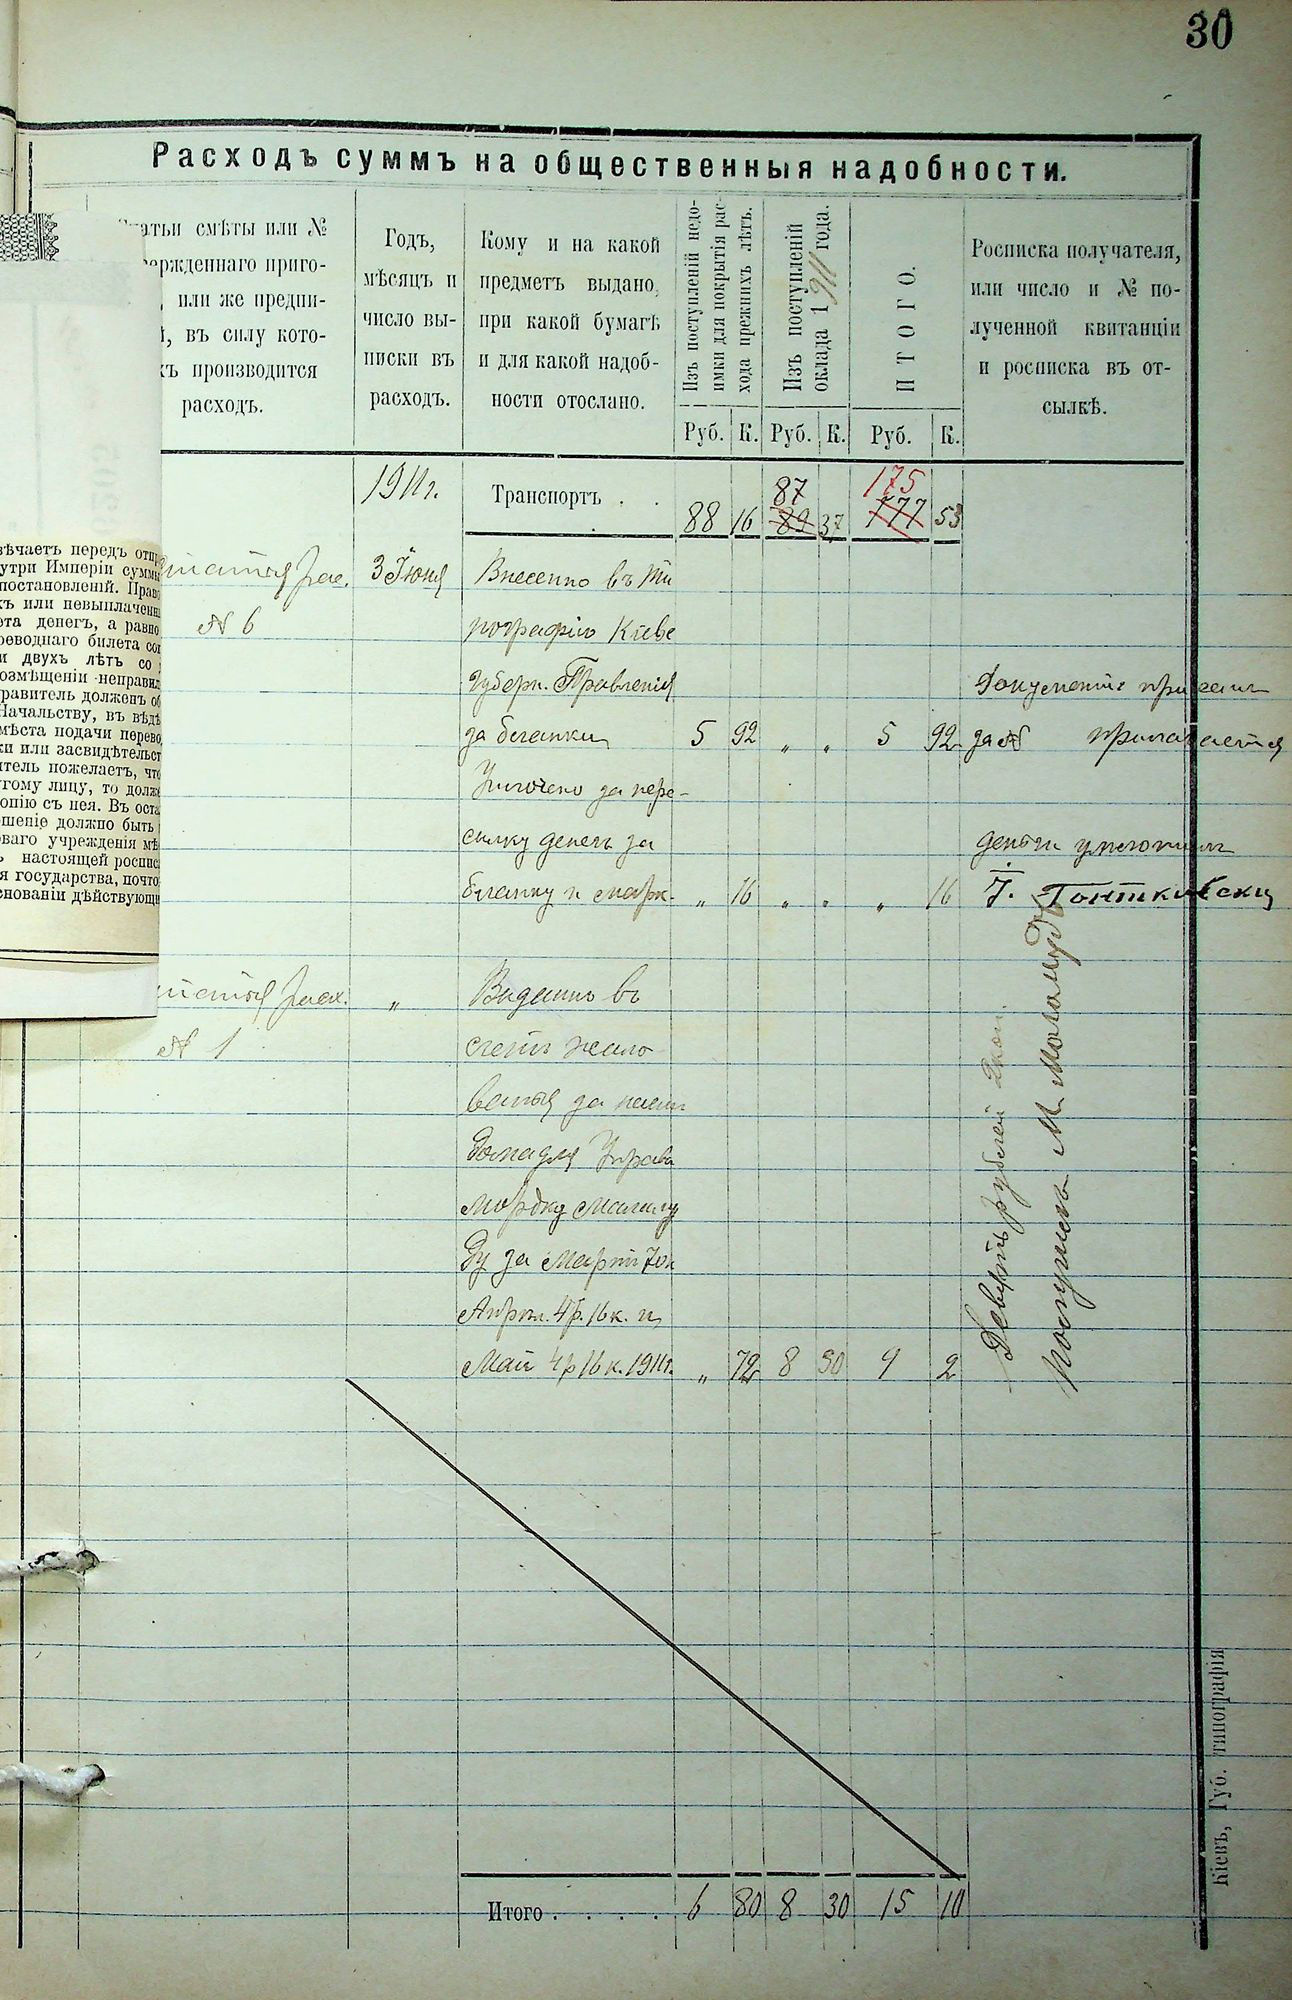 30
Расходъ суммъ на общественныя надобности.
татьи смѣты или №
ержденнаго приго-
, или же предпи-
й, въ силу кото-
хъ производится
расходъ.
Годъ,
мѣсяцъ и
число вы-
писки въ
расходъ.
Кому и на какой
предметъ выдано,
при какой бумагѣ
и для какой надоб-
ности отослано.
Изъ поступленій недо-
имки для покрытія рас-
хода прежнихъ лѣтъ.
Изъ поступленій
оклада 1911 года.
ИТОГО.
Росписка получателя,
или число и № по-
лученной квитанціи
и росписка въ от-
сылкѣ.
Руб. К. Руб. К. Руб. К.
87 175
1911г. Транспортъ . . 88 16 89 37 177 53
статья рас. 3 Іюня Внесенно въ Ти
№ 6 пографію Кіевс
Губерн. Правленія Документъ
за бланки 5 92 „ „ 5 92 за № прилагается
Уплочено за пере-
сылку денегъ за деньги уплотилъ
бланку и марк. „ 16 „ „ „ 16
статья расх. „ Видашъ въ
№ 1 счетъ жало
ванья за наем
Дома для Управ
Мордку Маламу
Ду за Мартъ 70к
Апрел. 4р. 16к. и
Май 4р 16к. 1911г. „ 72 8 30 9 2
Девять рублей Двѣ коп.
получилъ М. Маламудъ
Итого . . . . 6 80 8 30 15 10
Кіевъ, Губ. типографія
вѣчаетъ передъ отпр
утри Имперіи суммы
постановленій. Право
хъ или невыплаченны
ета денегъ, а равно
реводнаго билета сог
и двухъ лѣтъ со
озмѣщеніи неправил
равитель долженъ об
Начальству, въ вѣдѣ
мѣста подачи перево
ки или засвидѣтельст
итель пожелаетъ, что
гому лицу, то долже
опію съ нея. Въ оста
шеніе должно быть
ваго учрежденія мѣ
ъ настоящей роспис
я государства, почто
снованіи дѣйствующи